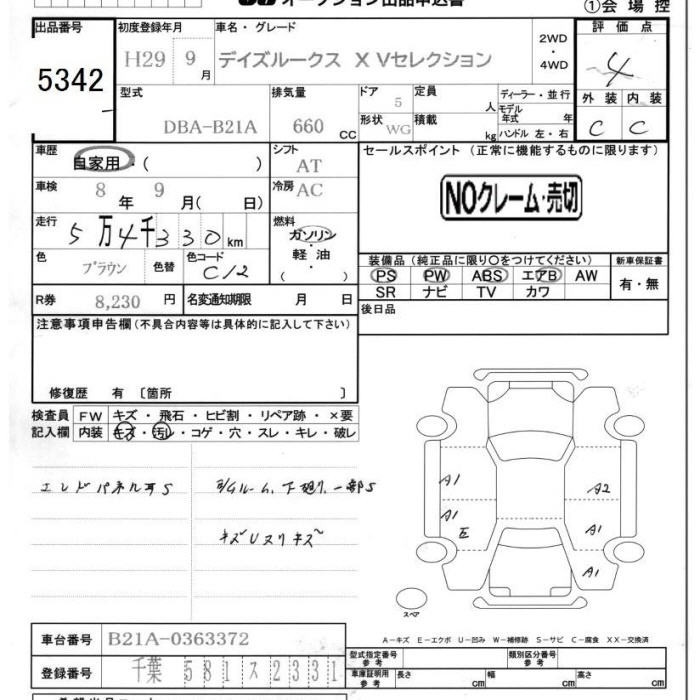 ①会場控
出品番号 初度登録年月 車名・グレード 2WD・4WD 評価点
5342 H29 9月 デイズルークス X Vセレクション 4
型式 排気量 ドア 定員 人 ディーラー・並行 外装 内装
DBA-B21A 660 CC 5 モデル年式 年 C C
形状 WG 積載 kg ハンドル 左・右
車歴 自家用・( ) シフト AT セールスポイント(正常に機能するものに限ります)
車検 8年 9月( 日) 冷房 AC NOクレーム・売切
走行 5万4千330km 燃料 ガソリン・軽油 ( )
色 ブラウン 色替 色コード C12 装備品(純正品に限り○をつけてください) 新車保証書
PS PW ABS エアB AW 有・無
R券 8,230 円 名変通知期限 月 日 SR ナビ TV カワ
注意事項申告欄(不具合内容等は具体的に記入して下さい) 後日品
修復歴 有 〔箇所 〕
検査員 FW キズ・飛石・ヒビ割・リペア跡・×要
記入欄 内装 キズ・汚レ・コゲ・穴・スレ・キレ・破レ
A1 A2
エンドパネル耳S 下廻り、一部S
A1 A1
E
A1
スペア
A-キズ E-エクボ U-凹み W-補修跡 S-サビ C-腐食 XX-交換済
車台番号 B21A-0363372
型式指定番号 参考 類別区分番号 参考
登録番号 千葉 581 ス 2331
車庫証明用 参考 長さ cm 幅 cm 高さ cm